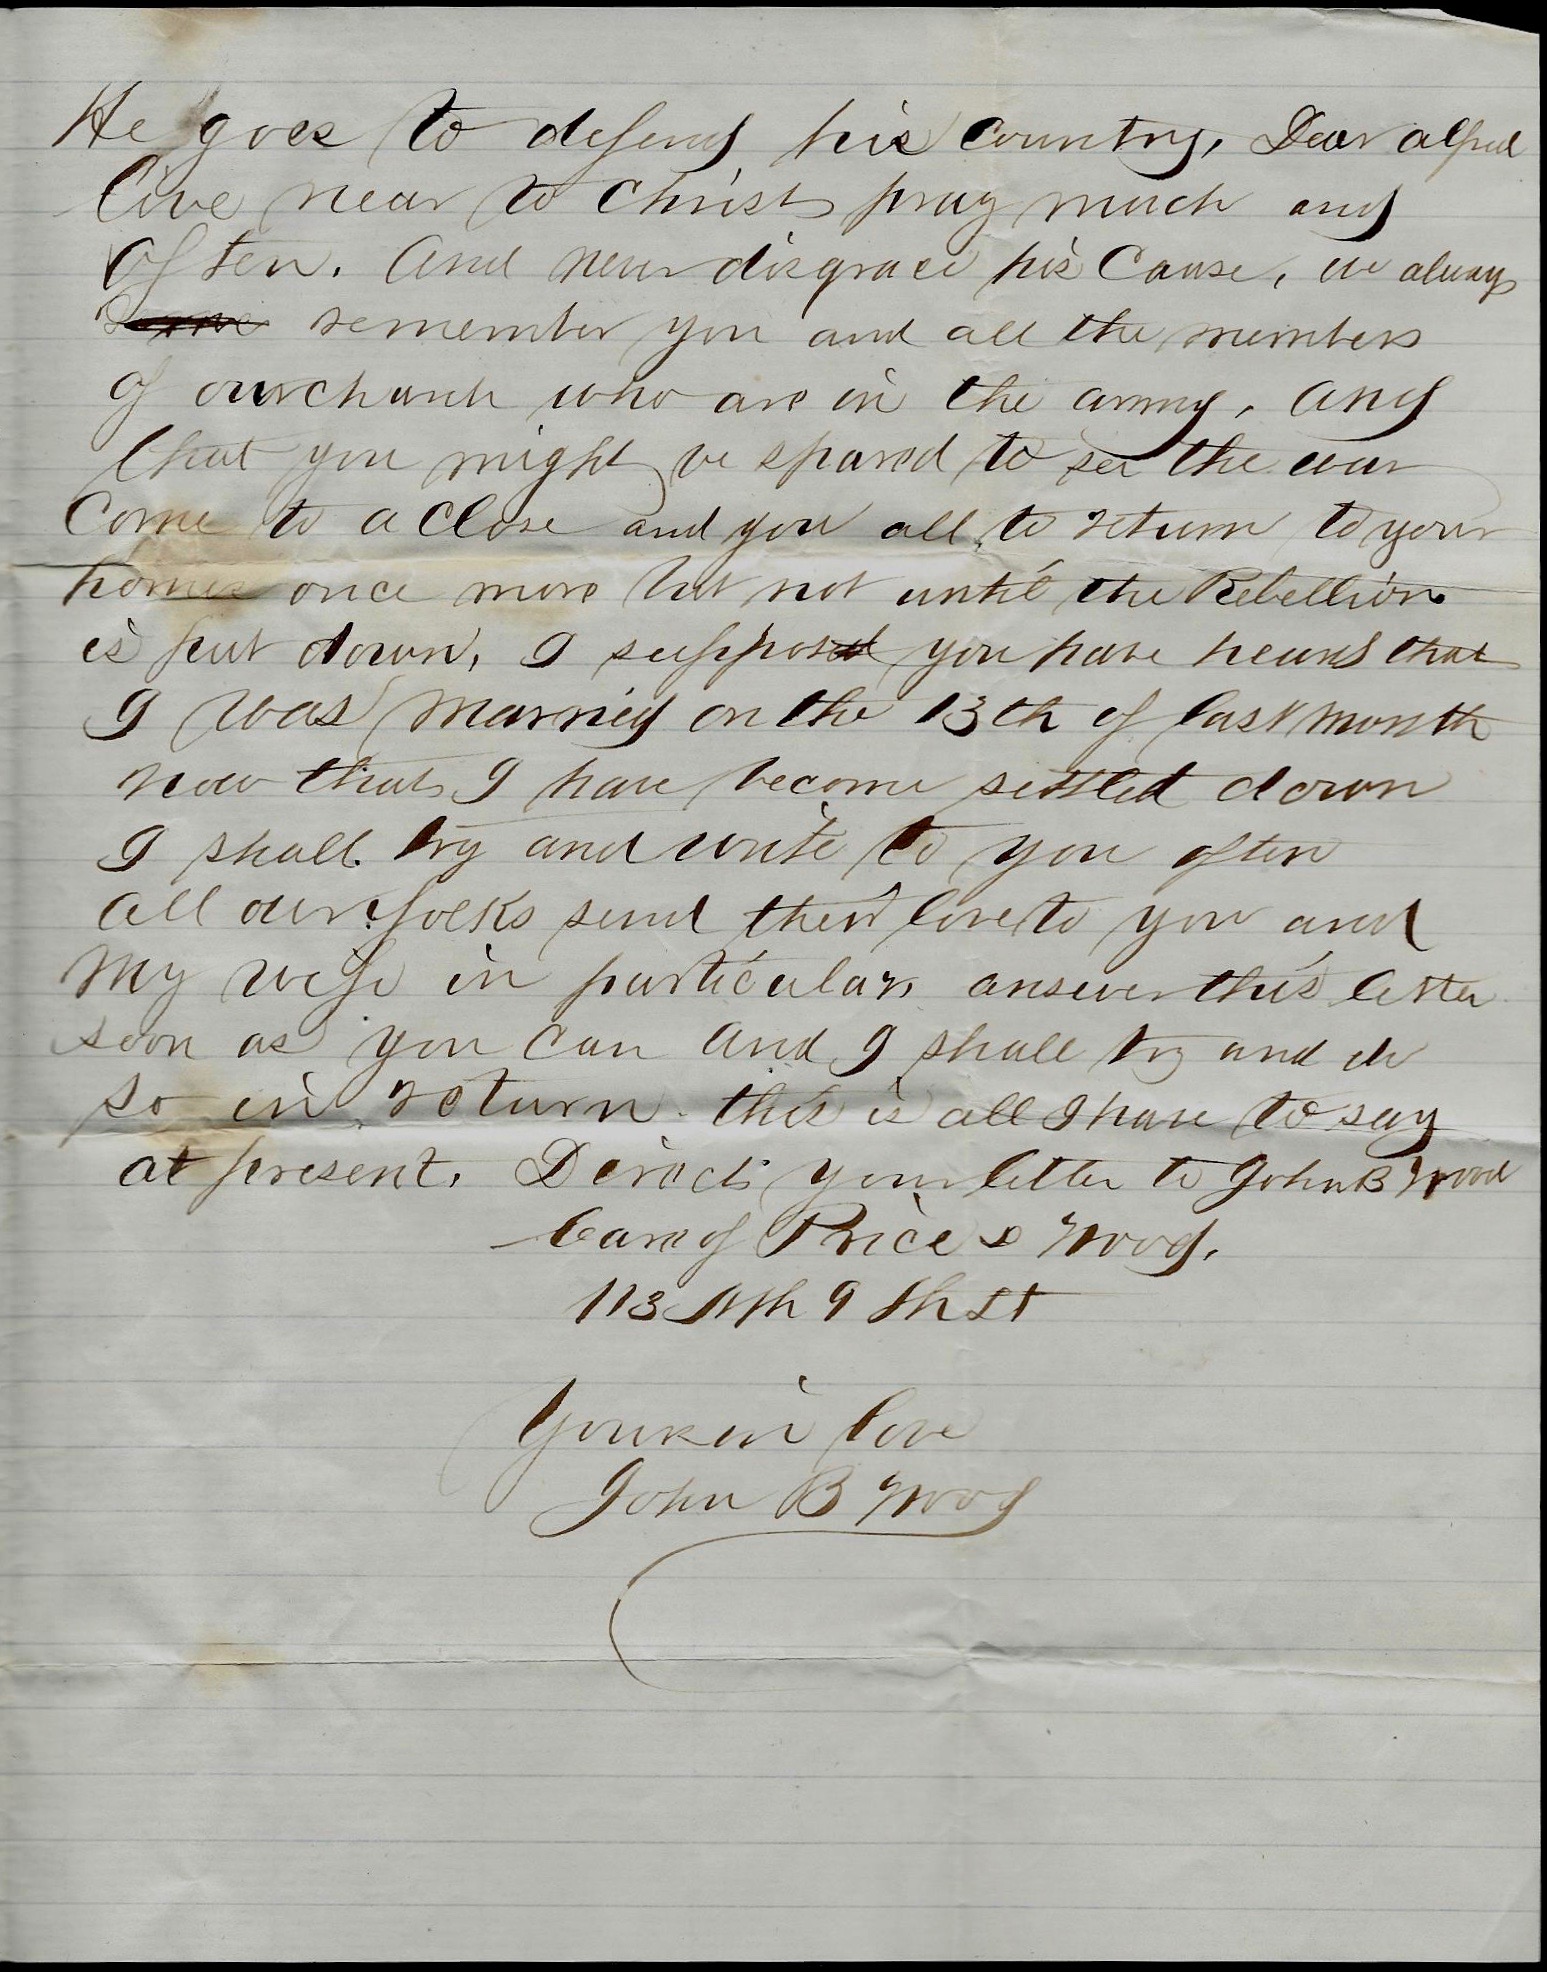 He goes to defend his Country, Dear alfred
live near to Christ pray much and
Often. And never disgrace his Cause, we always
remember you and all the members
of our church who are in the army, and
that you might be spared to see the war
Come to a Close and you all to return to your
homes once more but not until the Rebellion
is put down, I suppose you have heard that
I was married on the 13th of last month
now that I have become settled down
I shall try and write to you often
all our folks send their love to you and
My wife in particular, answer this letter
soon as you can and I shall try and do
so in return. this is all I have to say
at present. Direct your letter to John B Wood
Care of Price & Wood,
113 Nth 9th St
Yours in love
John B Wood